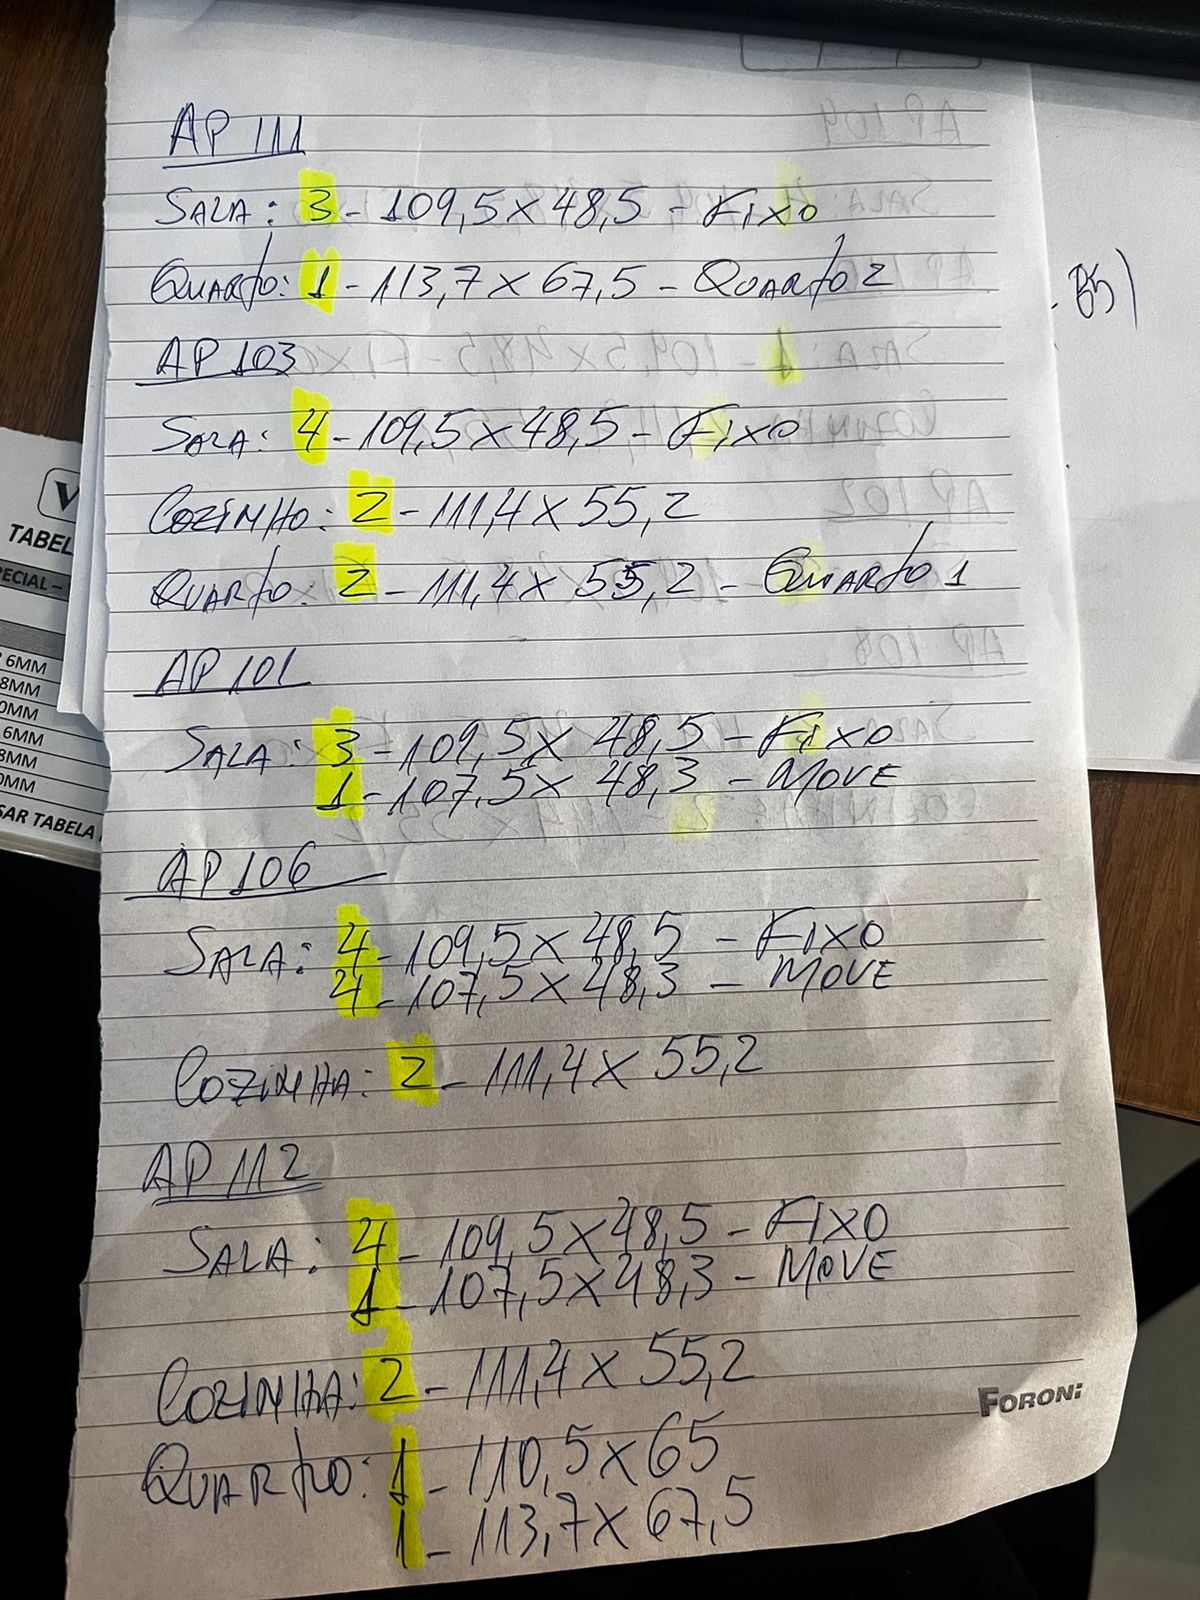 AP 111
SALA: 3 - 109,5 x 48,5 - Fixo
Quarto: 1 - 113,7 x 67,5 - Quarto 2
AP 103
SALA: 4 - 109,5 x 48,5 - Fixo
COZINHO: 2 - 111,4 x 55,2
Quarto: 2 - 111,4 x 55,2 - Quarto 1
AP 101
SALA: 3 - 109,5 x 48,5 - Fixo
1 - 107,5 x 48,3 - MOVE
AP 106
SALA: 4 - 109,5 x 48,5 - FIXO
4 - 107,5 x 48,3 - MOVE
COZINHA: 2 - 111,4 x 55,2
AP 112
SALA: 4 - 109,5 x 48,5 - FIXO
1 - 107,5 x 48,3 - MOVE
COZINHA: 2 - 111,4 x 55,2
QUARTO: 1 - 110,5 x 65
1 - 113,7 x 67,5
FORONI
V
TABEL
PECIAL –
6MM
8MM
0MM
6MM
8MM
0MM
SAR TABELA